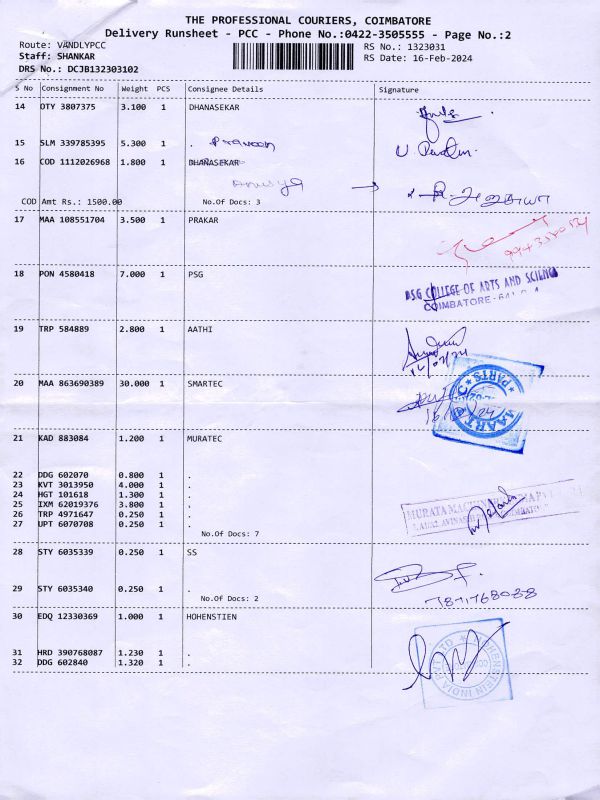 THE PROFESSIONAL COURIERS, COIMBATORE
Delivery Runsheet - PCC - Phone No.:0422-3505555 - Page No.:2
Route: VANDLYPCC RS No.: 1323031
Staff: SHANKAR RS Date: 16-Feb-2024
DRS No.: DCJB132303102
S No Consignment No Weight PCS Consignee Details Signature
14 OTY 3807375 3.100 1 DHANASEKAR
15 SLM 339785395 5.300 1 . Praveen
16 COD 1112026968 1.800 1 DHANASEKAR
Anusya
COD Amt Rs.: 1500.00 No.Of Docs: 3
17 MAA 108551704 3.500 1 PRAKAR
18 PON 4580418 7.000 1 PSG
PSG COLLEGE OF ARTS AND SCIENCE
COIMBATORE - 641
19 TRP 584889 2.800 1 AATHI
20 MAA 863690389 30.000 1 SMARTEC
PARTS
21 KAD 883084 1.200 1 MURATEC
22 DDG 602070 0.800 1 .
23 KVT 3013950 4.000 1 .
24 HGT 101618 1.300 1 .
25 IXM 62019376 3.800 1 .
26 TRP 4971647 0.250 1 .
27 UPT 6070708 0.250 1 .
MURATA MACHINERY
No.Of Docs: 7
28 STY 6035339 0.250 1 SS
29 STY 6035340 0.250 1 .
No.Of Docs: 2
30 EDQ 12330369 1.000 1 HOHENSTIEN
31 HRD 390768087 1.230 1 .
32 DDG 602840 1.320 1 .
HOHENSTEIN INDIA PVT LTD